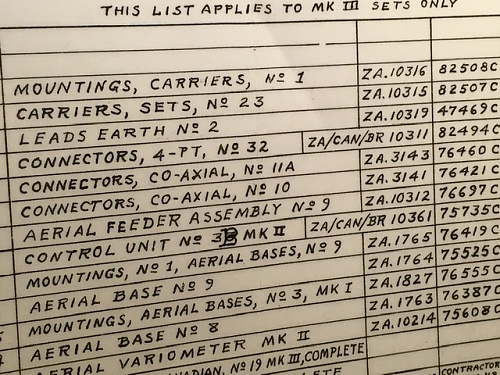 THIS LIST APPLIES TO MK III SETS ONLY
MOUNTINGS, CARRIERS, Nº 1 ZA.10316 82508C
CARRIERS, SETS, Nº 23 ZA.10315 82507C
LEADS EARTH Nº 2 ZA.10319 47469C
CONNECTORS, 4-PT, Nº 32 ZA/CAN/BR 10311 82494C
CONNECTORS, CO-AXIAL, Nº 11A ZA.3143 76460C
CONNECTORS, CO-AXIAL, Nº 10 ZA.3141 76421C
AERIAL FEEDER ASSEMBLY Nº 9 ZA.10312 76697C
CONTROL UNIT Nº 3B MK II ZA/CAN/BR 10361 75735C
MOUNTINGS, Nº 1, AERIAL BASES, Nº 9 ZA.1765 76419C
AERIAL BASE Nº 9 ZA.1764 75525C
MOUNTINGS, AERIAL BASES, Nº 3, MK I ZA.1827 76555C
AERIAL BASE Nº 8 ZA.1763 76387C
AERIAL VARIOMETER MK II ZA.10214 75608C
Nº 19 MK III, COMPLETE
CONTRACTOR